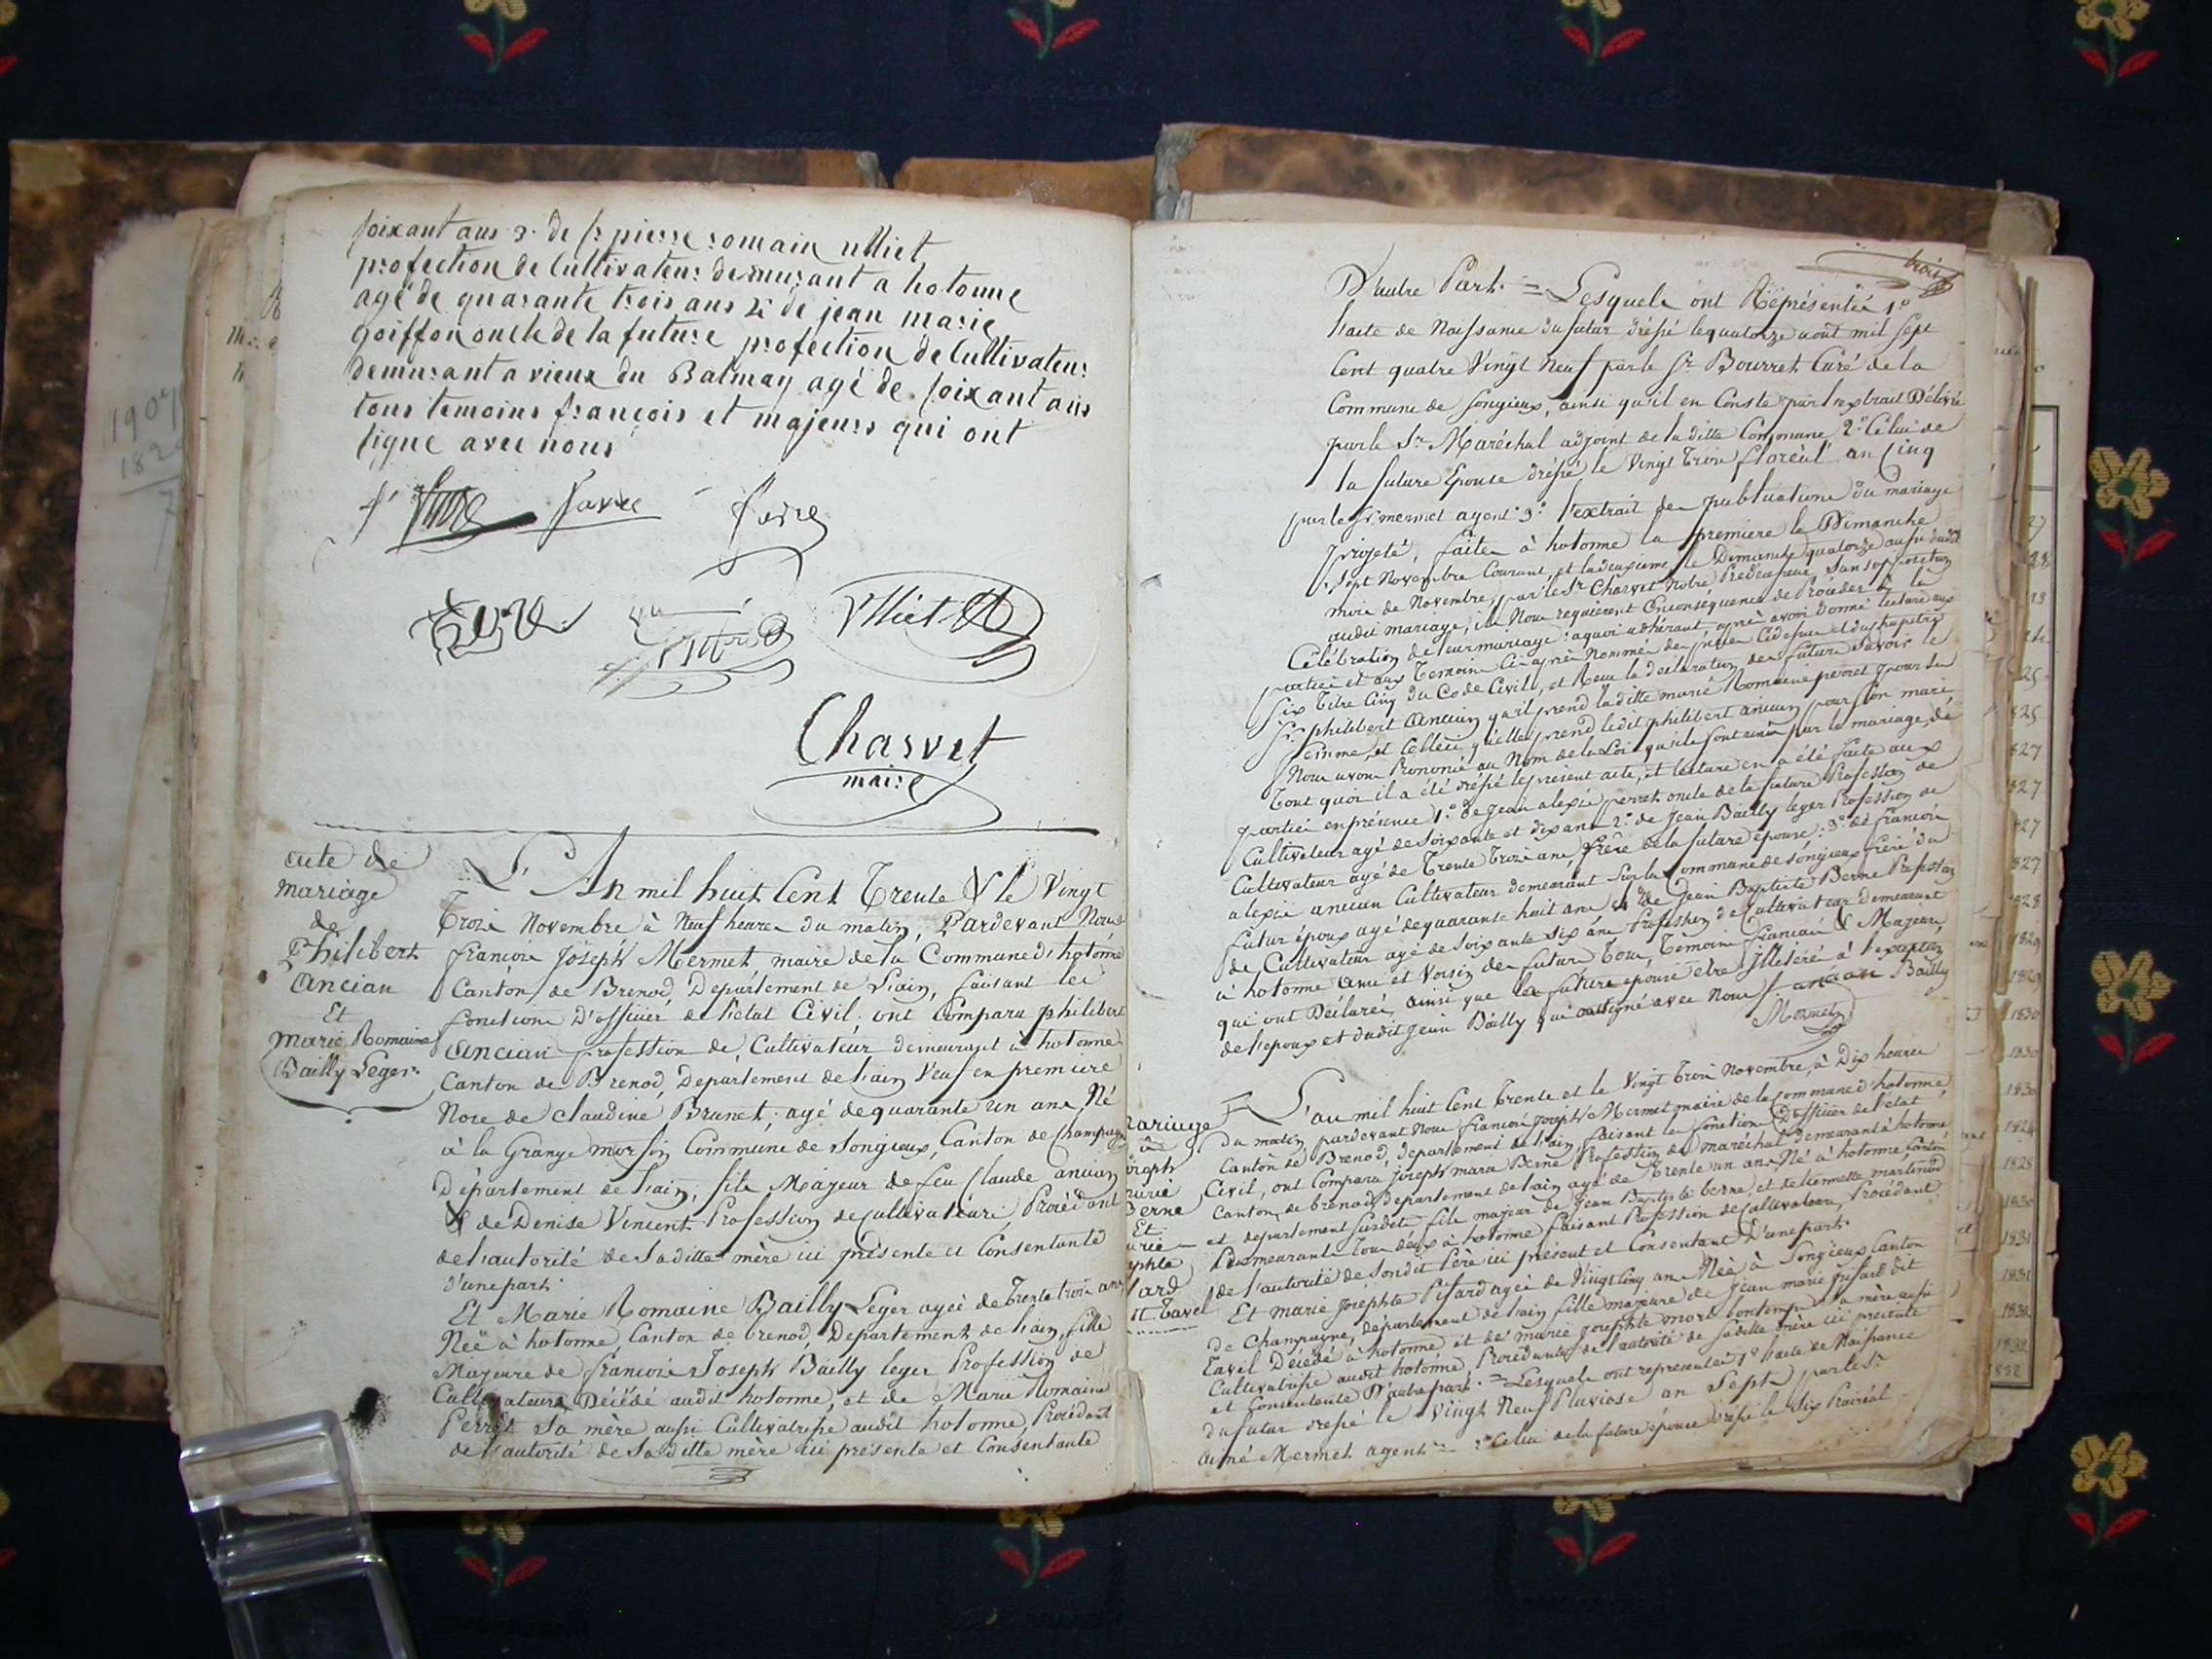 soixant ans 3. de sr pierre romain ulliet
profection de Cultivateur demurant a hotonne
agé de quarante trois ans 4 de jean marie
goiffon oncle de la future profection de Cultivateur
demurant a vieux du Balmay agé de soixant ans
tous temoins françois et majeurs qui ont
signe avec nous
favre favre
Ulliet
Charvet
maire
acte de
mariage
de
Philibert
Ancian
Et
Marie Romaine
Bailly Leger.
L'An mil huit Cent Trente & le Vingt
Trois Novembre à Neuf heures du matin, Pardevant Nous
françois Joseph Mermet, maire de la Commune d'hotonne
Canton de Brenod, Département de l'ain, faisant les
fonctions D'officier de l'état Civil; ont Comparu philibert
Ancian profession de Cultivateur demeurant à hotonne
Canton de Brenod, Departement de l'ain Veuf en premiere
Noce de Claudine Brunet; agé de quarante un ans, Né
à la Grange Commune de Songieux, Canton de Champagne
Département de l'ain, fils Majeur de feu Claude ancian
& de Denise Vincent Profession de Procédant
de l'autorité de Saditte mère ici présente et Consentante
d'une part.
Et Marie Romaine Bailly Leger agée de Trente trois ans
Née à hotonne, Canton de brenod, Departement de l'ain, fille
Majeure de francois Joseph Bailly leger Profession de
Cultivateur Décédé audit hotonne, et de Marie Romaine
Perret Sa mère aussi Cultivatrise audit hotonne, Procédant
de l'autorité de Saditte mère ici présente et Consentante
trois
D'autre Part. = Lesquels ont Représentée 1°
l'acte de Naissance du futur dréssé le quatorze aout mil sept
Cent quatre Vingt Neuf par le Sr Bourret Curé de la
Commune de Songieux, ainsi qu'il en Conste par l'extrait Délivré
par le Sr. Maréchal adjoint de la ditte Commune 2° Celui de
la future Epouse dréssé le Vingt Trois floréal an Cinq
par le Sr. mermet agent 3° l'extrait des publications du mariage
projeté, faites à hotonne la premiere le Dimanche
sept Novembre Courant, et la deuxieme le Dimanche quatorze aussi dudit
mois de Novembre, par le Sr Charvet Notre Prédécesseur, Sans opposition
audit mariage, ils Nous requièrent Enconséquence de Procéder à la
Célébration de leur mariage: aquoi adhérant après avoir donné lecture aux
parties et aux Temoins Ci après Nommés des pièces Cidessus et du chapitre
Six Titre Cinq du Code Civile, et Reçu la déclaration des futurs Savoir le
Sr. philibert Ancian qu'il prend laditte marie Romaine perret pour Sa
femme, et Celleci qu'elle prend ledit philibert ancian pour Son mari
Nous avons Prononcé au Nom de la Loi qu'ils Sont unis par le mariage, de
Tout quoi il a été dréssé le présent acte, et lecture en a été faite aux
parties en présence 1° de Jean alexis perret oncle de la future Profession de
Cultivateur agé de Soixante et dix ans 2° de Jean Bailly leger Profession de
Cultivateur agé de Trente Trois ans, frère de la future épouse: 3° de francois
alexis ancian Cultivateur demeurant Sur la Commune de Songieux frère du
futur époux agé de quarante huit ans 4° de Jean Baptiste Berne Profession
de Cultivateur agé de Soixante Six ans Profession de Cultivateur demeurant
à hotonne ami et Voisin des futurs Tous Témoins francais & Majeurs
qui ont Déclarés, ainsi que la future epouse etre Illétéré à l'exception
de l'epoux et dudit Jean Bailly qui ont signé avec Nous f. ancian Bailly
Mermet
mariage
Et
Berne
L'an mil huit Cent Trente et le Vingt Trois Novembre, à Dix heures
du matin, pardevant Nous francois Joseph Mermet maire de la Commune d'hotonne
Canton de Brenod, departement de l'ain, faisant les fonctions D'officier de l'état
Civil, ont Comparu Joseph marie Berne Profession de maréchal demeurant à hotonne
Canton de brenod Departement de l'ain agé de Trente un ans Né à hotonne, Canton
et departement Susdits fils majeur de Jean Baptiste berne, et de
Demeurant Tous deux à hotonne faisant Profession de Cultivateurs, Procédant
de l'autorité de Sondit Père ici présent et Consentant D'une part.
Et marie Josephte Pisard agée de Vingt Cinq ans Née à Songieux Canton
de Champagne, département de l'ain fille majeure de Jean marie pisard dit
Tavel Décédé à hotonne et de marie Josephte Sa mère aussi
Cultivatrise audit hotonne, Procédante de l'autorité de Saditte mère ici présente
et Consentante D'autre part. = Lesquels ont représentés 1° l'acte de Naissance
du futur dressé le Vingt Neuf Pluviose an Sept, par le Sr
Aimé Mermet agent = 2° Celui de la future épouse dréssé le Six Prairéal